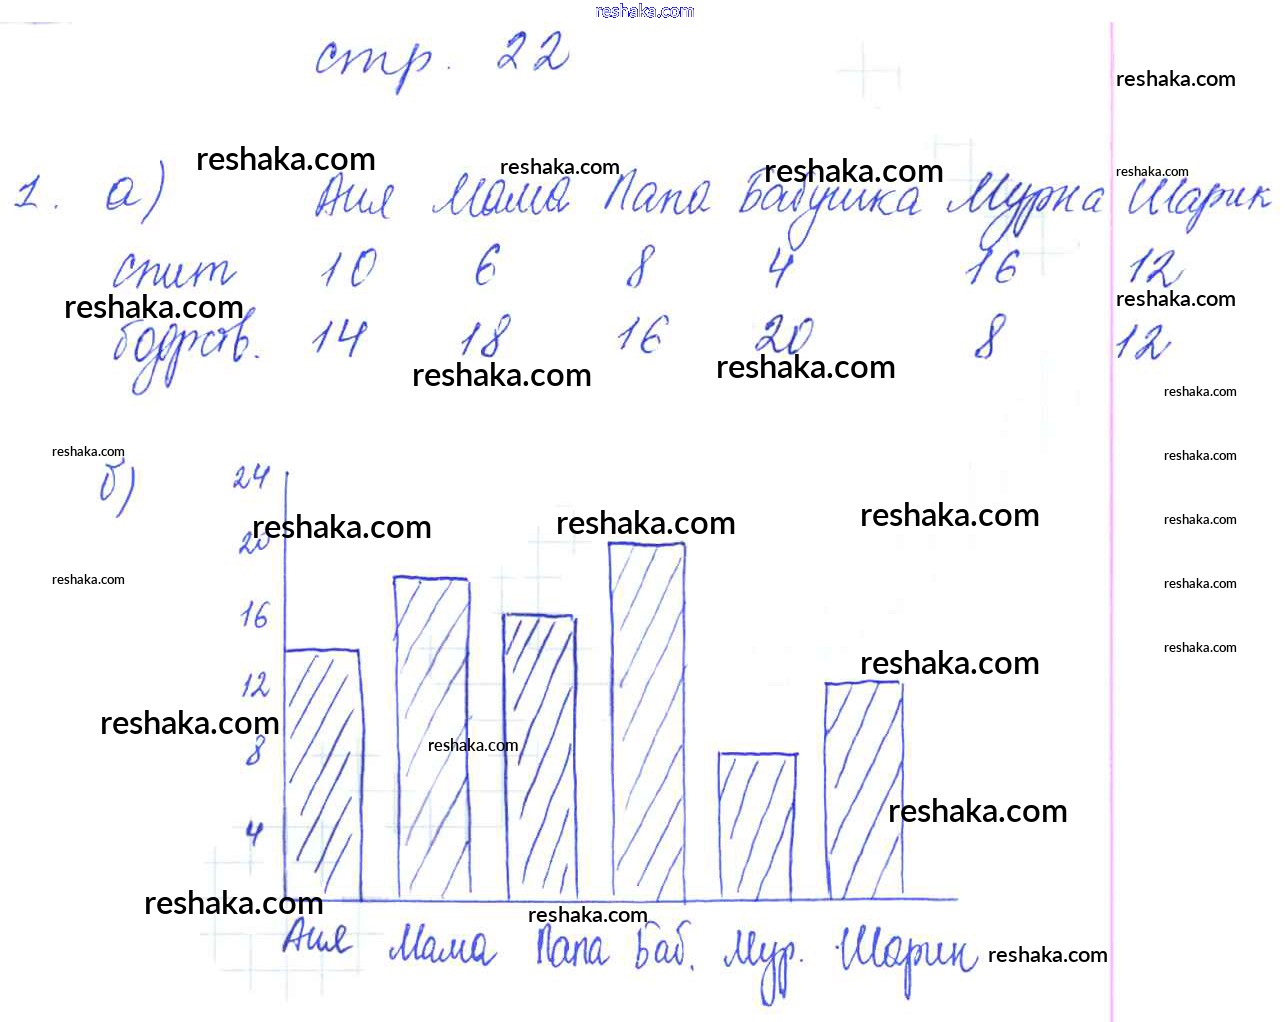 reshaka.com
стр. 22
reshaka.com
reshaka.com reshaka.com reshaka.com reshaka.com
1. а) Аня Мама Папа Бабушка Мурка Шарик
спит 10 6 8 4 16 12
reshaka.com reshaka.com
бодрств. 14 18 16 20 8 12
reshaka.com reshaka.com
reshaka.com
reshaka.com reshaka.com
б) 24
reshaka.com reshaka.com reshaka.com reshaka.com
20
reshaka.com reshaka.com
16
reshaka.com reshaka.com
12
reshaka.com reshaka.com
8
reshaka.com
4
reshaka.com reshaka.com
Аня Мама Папа Баб. Мур. Шарик reshaka.com